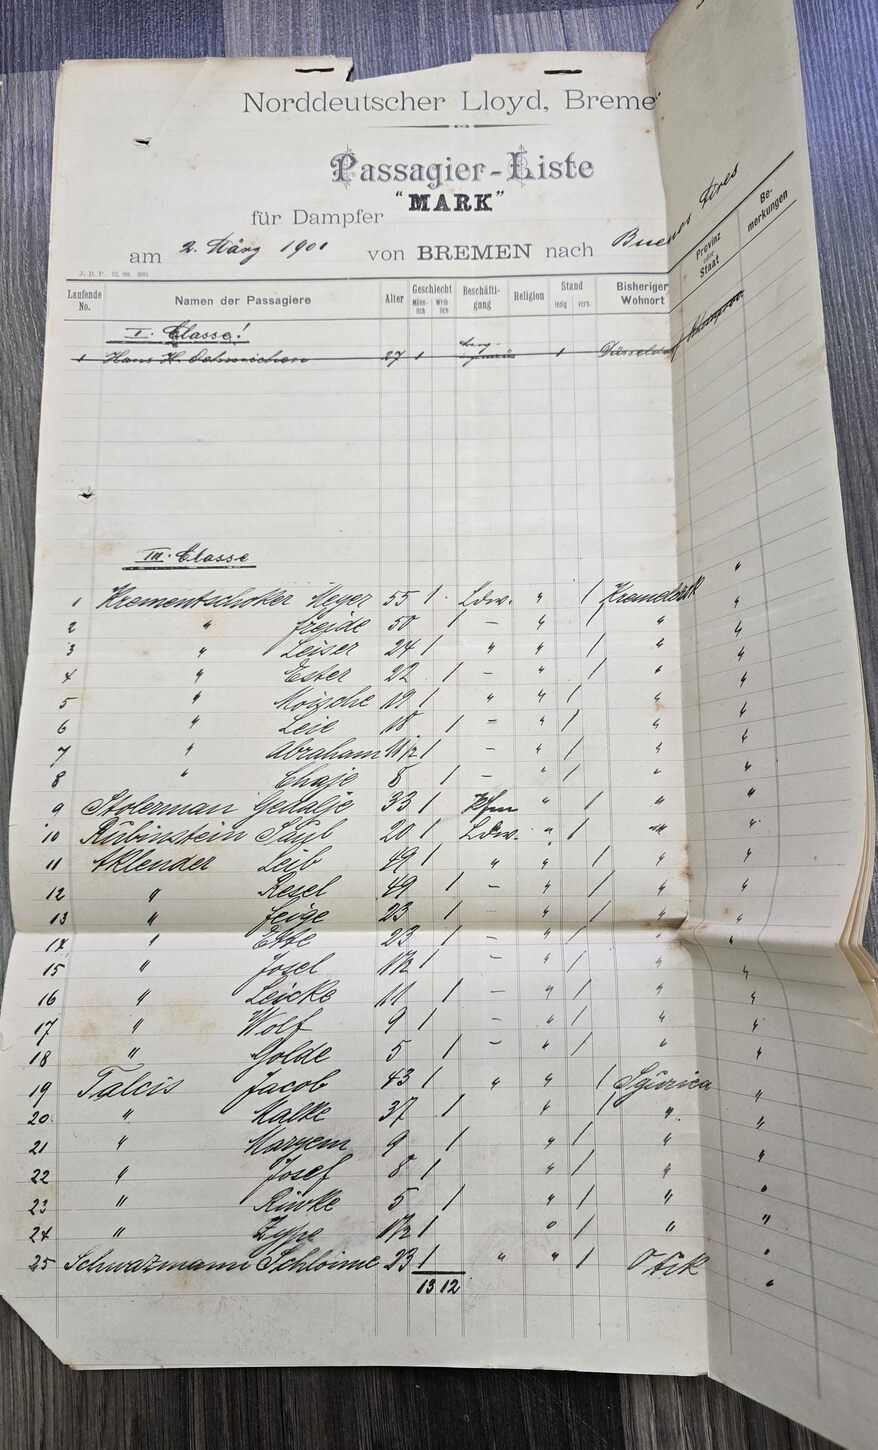 Norddeutscher Lloyd, Breme
Passagier-Liste
für Dampfer "MARK"
am 2. März 1901 von BREMEN nach Buenos Aires
J. D. P. 12. 99. 500.
Laufende No. Namen der Passagiere Alter Geschlecht Männ-lich Weib-lich Beschäfti-gung Religion Stand ledig verh. Bisheriger Wohnort Provinz oder Staat Be-merkungen
I. Classe!
1 Hans H. Oehmichen 27 1 1 Düsseldorf
III. Classe
1 Krementschoker Meyer 55 1 Ldw. " / "
2 " Freide 50 / – " / " "
3 " Leiser 24 / " " / " "
4 " Ester 22 / – " / " "
5 " Moische 19 / " " / " "
6 " Leie 18 / – " / " "
7 " Abraham 11 1/2 / – " / " "
8 " Chaje 8 / – " / " "
9 Stolerman Gedalje 33 / Kfm " / " "
10 Rubinstein Saul 20 / Ldw. " / " "
11 Aklender Leib 49 / " " / " "
12 " Resel 49 / – " / " "
13 " Feige 23 / – " / " "
14 " Ette 23 – " / " "
15 " Josel 1 1/2 / – " / " "
16 " Leicke 11 / – " / " "
17 " Wolf 9 / – " / " "
18 " Golde 5 / – " / " "
19 Talcis Jacob 43 / " " / "
20 " Malke 37 / " / " "
21 " Maryem 9 / " / " "
22 " Josef 8 / " / " "
23 " Riwke 5 / " / " "
24 " Zype 1 1/2 / " / " "
25 Schwazmann Schloime 23 / " " / "
13 12